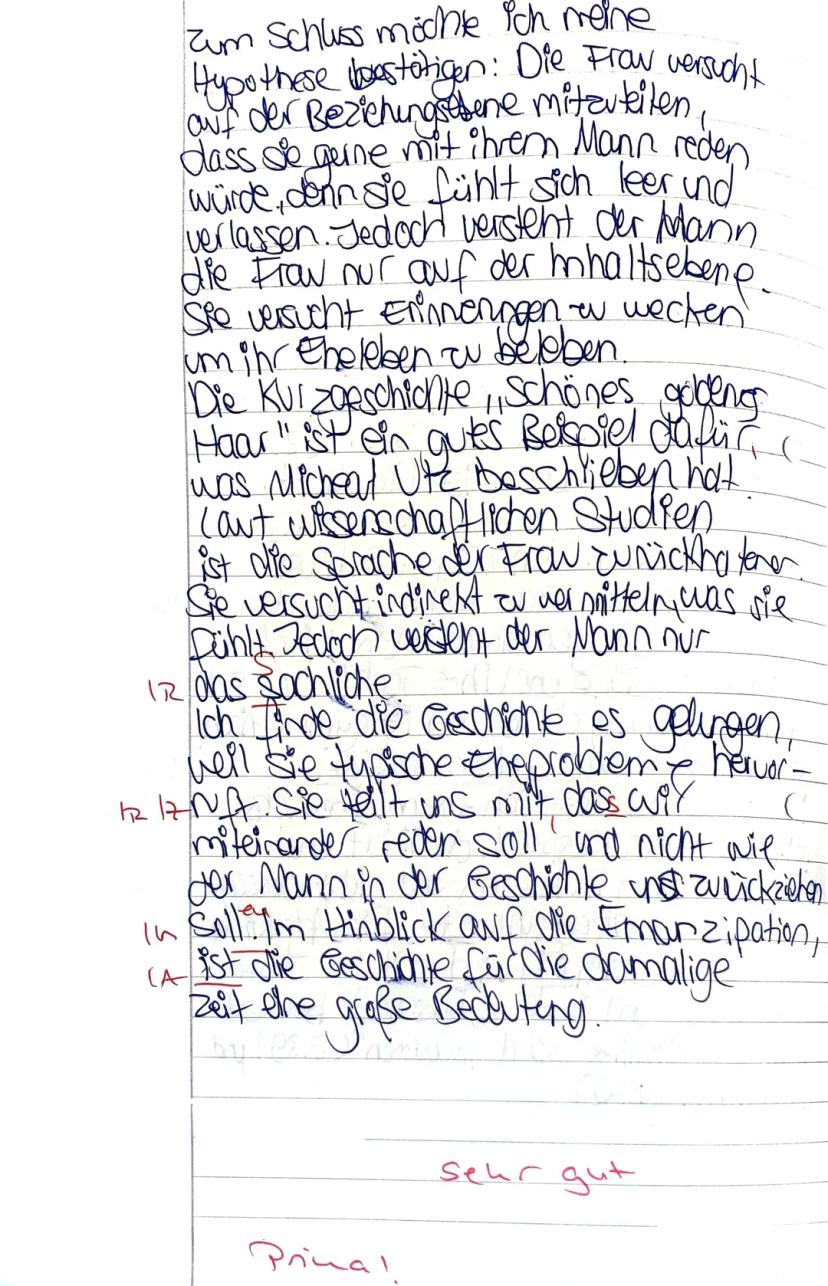 Zum Schluss möchte ich meine
Hypothese bestätigen: Die Frau versucht
auf der Beziehungsebene mitzuteilen,
dass sie gerne mit ihrem Mann reden
würde, denn sie fühlt sich leer und
verlassen. Jedoch versteht der Mann
die Frau nur auf der Inhaltsebene.
Sie versucht Erinnerungen zu wecken
um ihr Eheleben zu beleben.
Die Kurzgeschichte „Schönes goldenes
Haar" ist ein gutes Beispiel dafür, (
was Micheal Utz beschrieben hat.
Laut wissenschaftlichen Studien
ist die Sprache der Frau zurückhaltener.
Sie versucht indirekt zu vermitteln, was sie
fühlt. Jedoch versteht der Mann nur
S
1R das sachliche
Ich finde die Geschichte es gelungen,
weil sie typische Eheprobleme hervor-
1R 1Z ruft. Sie teilt uns mit, dass wir (
miteinander reden soll, und nicht wie
der Mann in der Geschichte uns zurückziehen
1G sollen. Im Hinblick auf die Emanzipation,
1A ist die Geschichte für die damalige
Zeit eine große Bedeutung.
sehr gut
Prima!